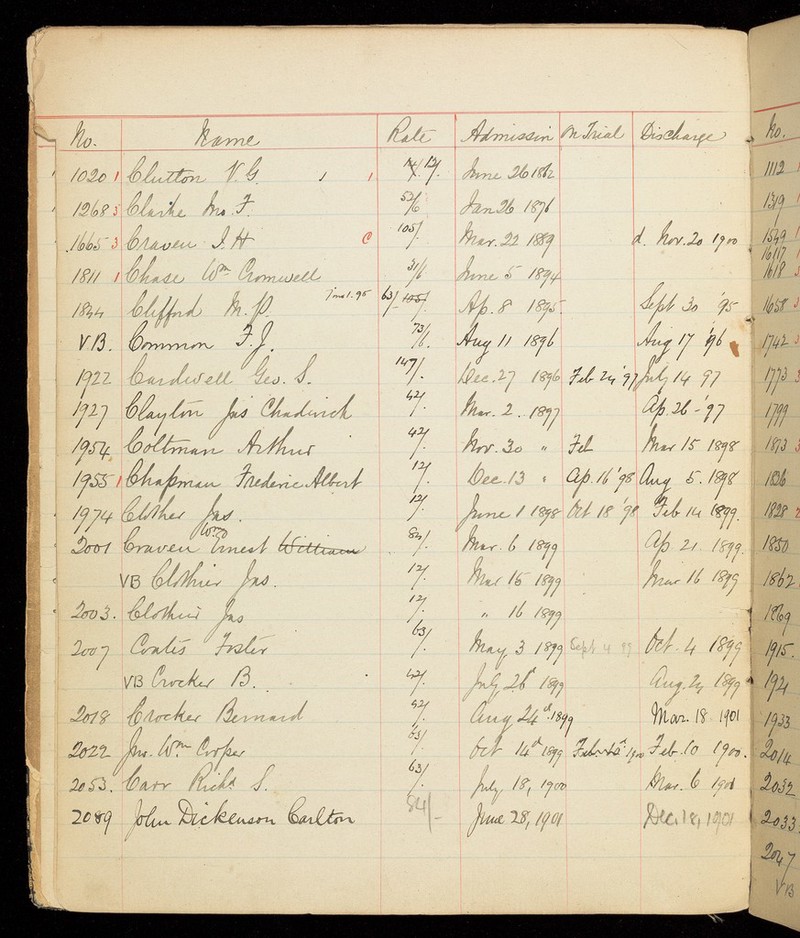 No. Name Rate Admission On Trial Discharge No.
1020 1 Clutton V. G. 1 1 14/ 12/. June 26 1862 1112
1268 3 Clarke Jno. F. 52/6 Jan 26 1876 1319
1665 3 Craven J. H C 105/. Mar. 22 1889 d. Nov. 20 1900 1549
1617
1811 1 Chase Wm Cromwell 31/6 June 5 1894 1618
1844 Clifford M. P. 63/- 105/. Ap. 8 1895. Sept 30 '95 1658
VB. Common F. J. 73/6. Aug 11 1896 Aug 17 '96 1742
1922 Cardwell Geo. S. 147/. Dec. 27 1896 Feb 24 '97 July 14 97 1773
1927 Clayton Jas Chadwick 42/. Mar. 2. 1897 Ap. 26 - '97 1799
1954 Coltman Arthur 42/. Nov. 30 " Feb Mar 15 1898 1813
1955 1 Chapman Frederic Albert 12/. Dec. 13 " Ap. 16 '98 Aug 5. 1898 1836
1974 Clother Jas. 12/. June 1 1898 Oct 18 '98 Feb 14 1899. 1828
2001 Craven Wm Ernest William 84/. Mar. 6 1899 Ap 21. 1899. 1850
VB Clothier Jas. 12/. Mar 15 1899 Mar 16 1899 1862
2003. Clothier Jas 12/. " 16 1899 1869
2007 Coates Foster 63/. May 3 1899 Sept 4 99 Oct. 4 1899 1915.
VB Crocker B. 42/. July 26 1899 Aug. 24 1899 1921
2018 Crocker Bernard 42/. Aug 24 1899 Mar. 18 1901 1933
2022 Jno. Wm Cooper 63/. Oct 14 1899 Feb. 1900 Feb. 10 1900. 2014
2053. Carr Richd S. 63/. July 18, 1900 Mar. 6 1901 2032
2089 John Dickenson Carlton 84/- June 28, 1901 Dec. 18, 1901 2033
2047
VB